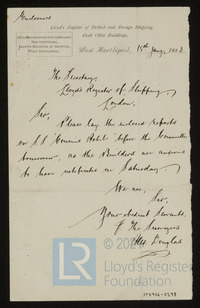 Enclosures
Lloyd's Register of British and Foreign Shipping,
Dock Office Buildings,
West Hartlepool, 15th Aug, 1883
The Secretary,
Lloyd's Register of Shipping
London.
Sir,
Please lay the enclosed reports
on S.S. before the Committee
tomorrow, as the Builders are anxious
to have notification on Saturday.
We are,
Sir,
Your obedient Servants,
The Surveyors
Douglas
© 202
Lloyd's Register
Foundation